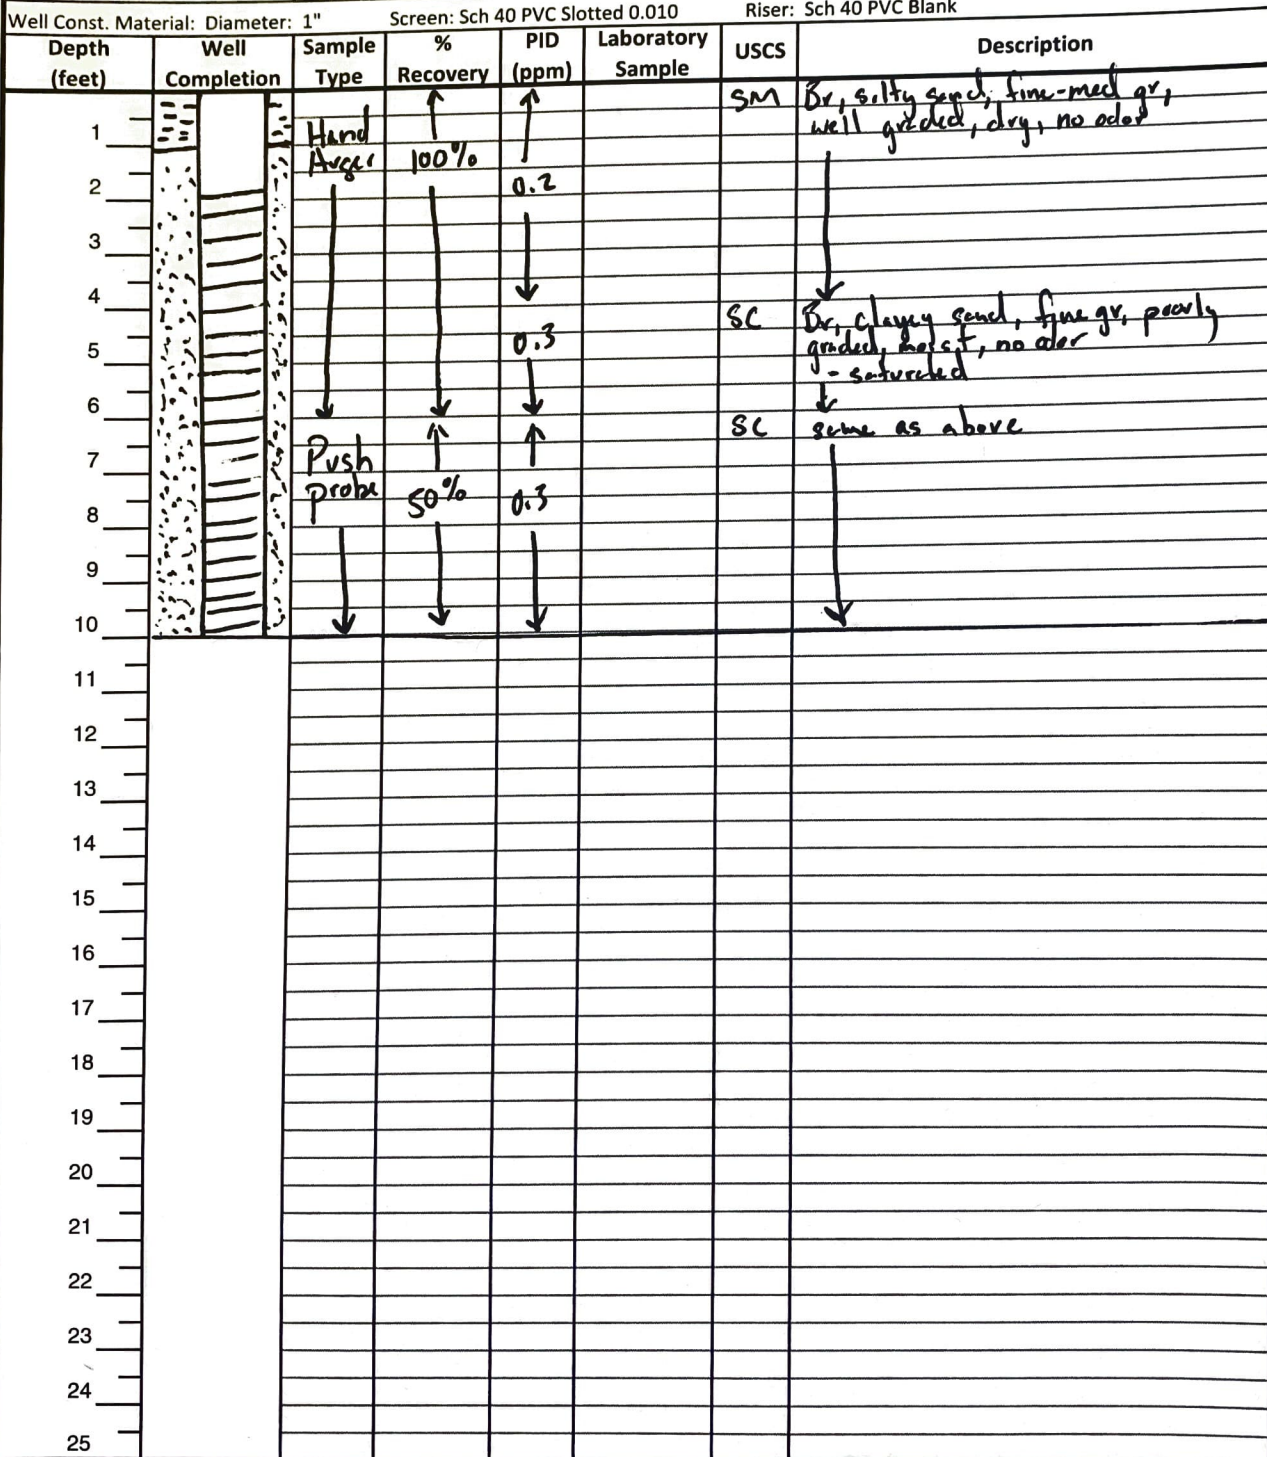 Well Const. Material: Diameter: 1" Screen: Sch 40 PVC Slotted 0.010 Riser: Sch 40 PVC Blank
Depth (feet) Well Completion Sample Type % Recovery PID (ppm) Laboratory Sample USCS Description
SM Br, silty sand, fine-med gr,
well graded, dry, no odor
1 Hand
Auger 100%
2 0.2
3
4
SC Br, clayey sand, fine gr, poorly
0.3 graded, moist, no odor
5 - saturated
6
SC same as above
7 Push
probe 50% 0.3
8
9
10
11
12
13
14
15
16
17
18
19
20
21
22
23
24
25